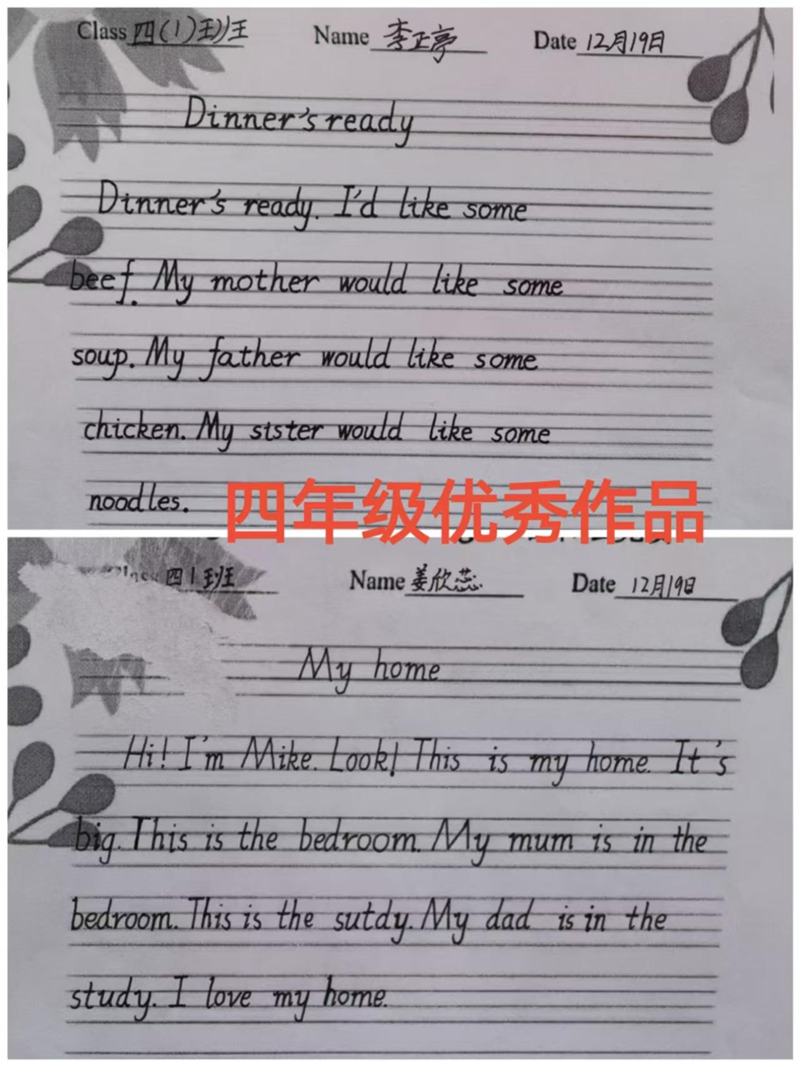 Class 四(1)班 Name 李正亭 Date 12月19日
Dinner's ready
Dinner's ready. I'd like some
beef. My mother would like some
soup. My father would like some
chicken. My sister would like some
noodles.
四年级优秀作品
Class 四1班 Name 姜欣蕊 Date 12月19日
My home
Hi! I'm Mike. Look! This is my home. It's
big. This is the bedroom. My mum is in the
bedroom. This is the sutdy. My dad is in the
study. I love my home.